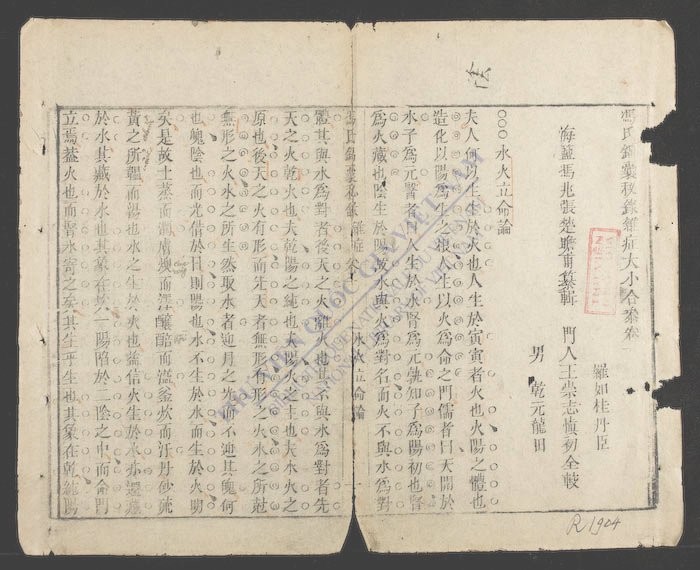 馮氏錦囊秘錄雜症大小合參卷
羅如桂丹臣
海鹽馮兆張楚瞻甫纂輯 門人王崇志慎初仝較
男 乾元龍田
○○○水火立命論
夫人何以生生於火也人生於寅寅者火也火陽之體也
造化以陽為生之根人生以火為命之門儒者曰天開於
水子為元醫者曰人生於水腎為元孰知子為陽初也腎
為火藏也陰生於陽故水與火為對名而火不與水為對
馮氏錦囊秘錄 雜症 水火立命論 一
體其與水為對者後天之火離火也其不與水為對者先
天之火乾火也夫乾陽之純也太陽火之主也夫水火之
原也後天之火有形而先天者無形有形之火水之所尅
無形之火水之所生然取水者迎月之光而不迎其魄何
也魄陰也而光借於日則陽也水不生於水而生於火明
矣是故土蒸而潤膚燠而澤釀醅而
黃之所韞而湯也水之生於火也益信火生於水亦還
於水其藏於水也其象在坎一陽陷於二陰之中而命門
立焉蓋火也而腎水寄之矣其生乎生也其象在乾純陽
R1904
THƯ VIỆN QUỐC GIA VIỆT NAM
NATIONAL LIBRARY OF VIETNAM